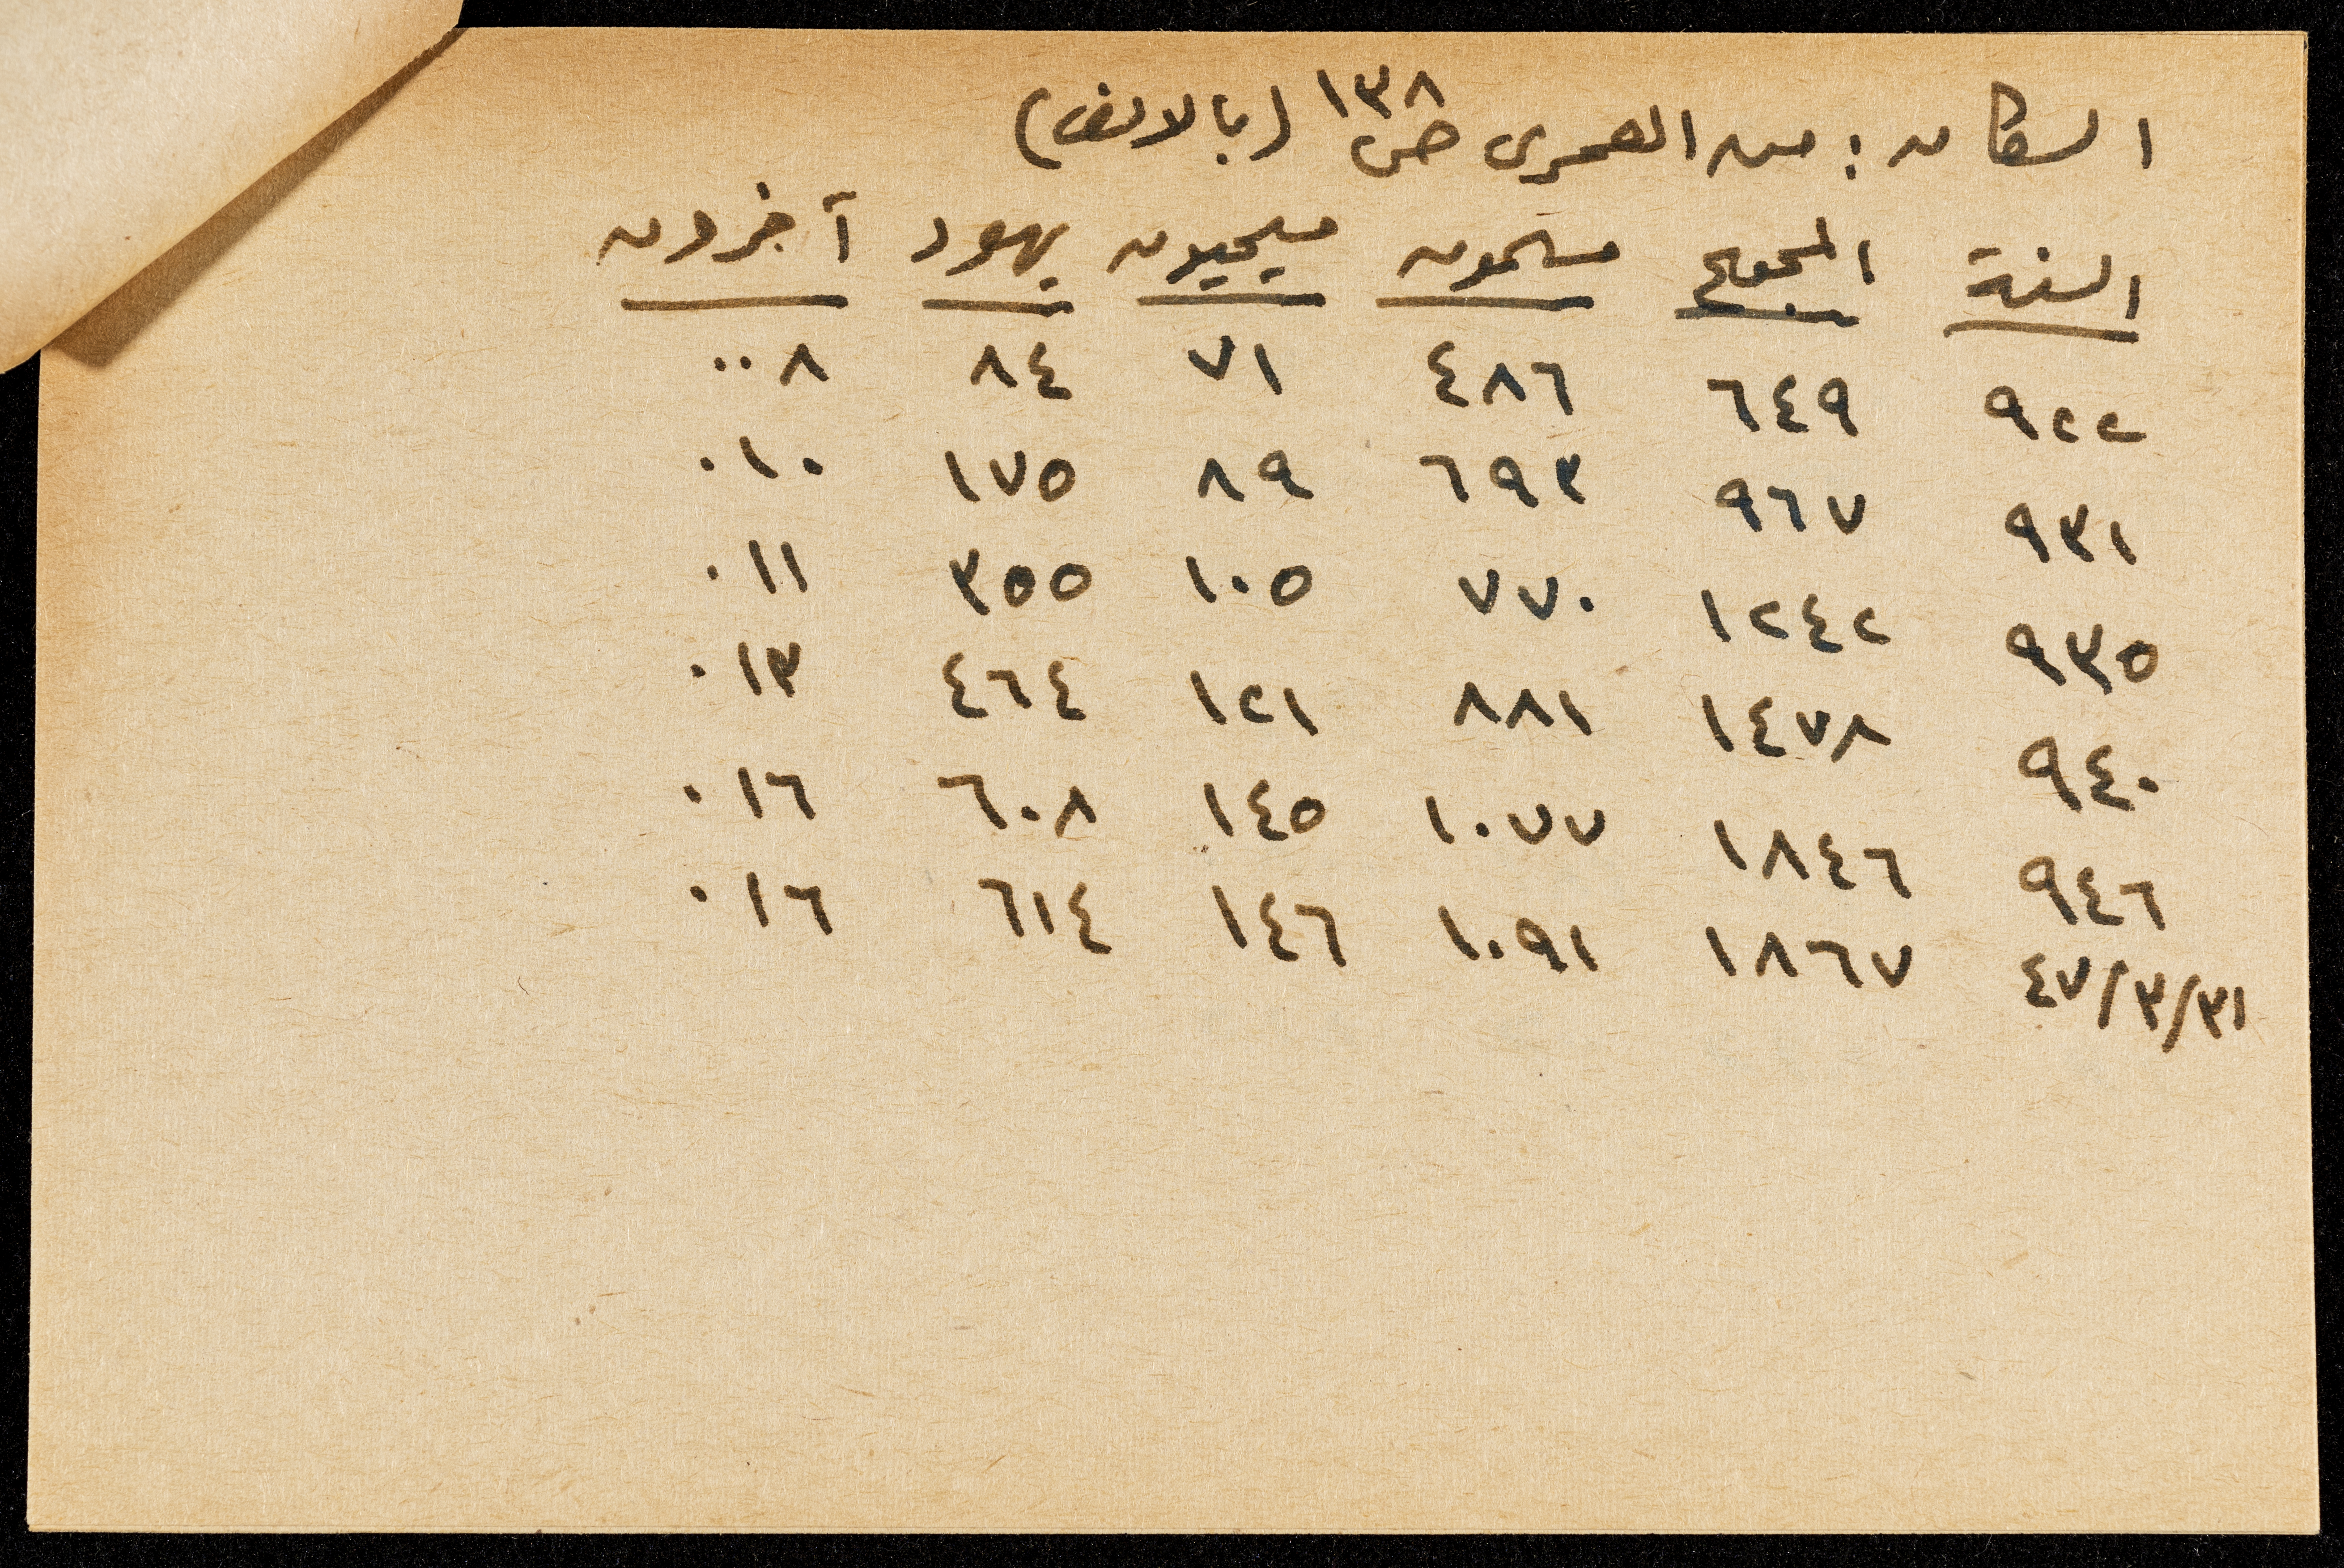 السكان : من العمري ص ١٣٨ (بالالف)
السنة المجموع مسلمون مسيحيون يهود آخرون
٩٢٢ ٦٤٩ ٤٨٦ ٧١ ٨٤ ٠٠٨
٩٣١ ٩٦٧ ٦٩٣ ٨٩ ١٧٥ ٠١٠
٩٣٥ ١٢٤٢ ٧٧٠ ١٠٥ ٣٥٥ ٠١١
٩٤٠ ١٤٧٨ ٨٨١ ١٢١ ٤٦٤ ٠١٣
٩٤٦ ١٨٤٦ ١٠٧٧ ١٤٥ ٦٠٨ ٠١٦
٤٧/٣/٣١ ١٨٦٧ ١٠٩١ ١٤٦ ٦١٤ ٠١٦